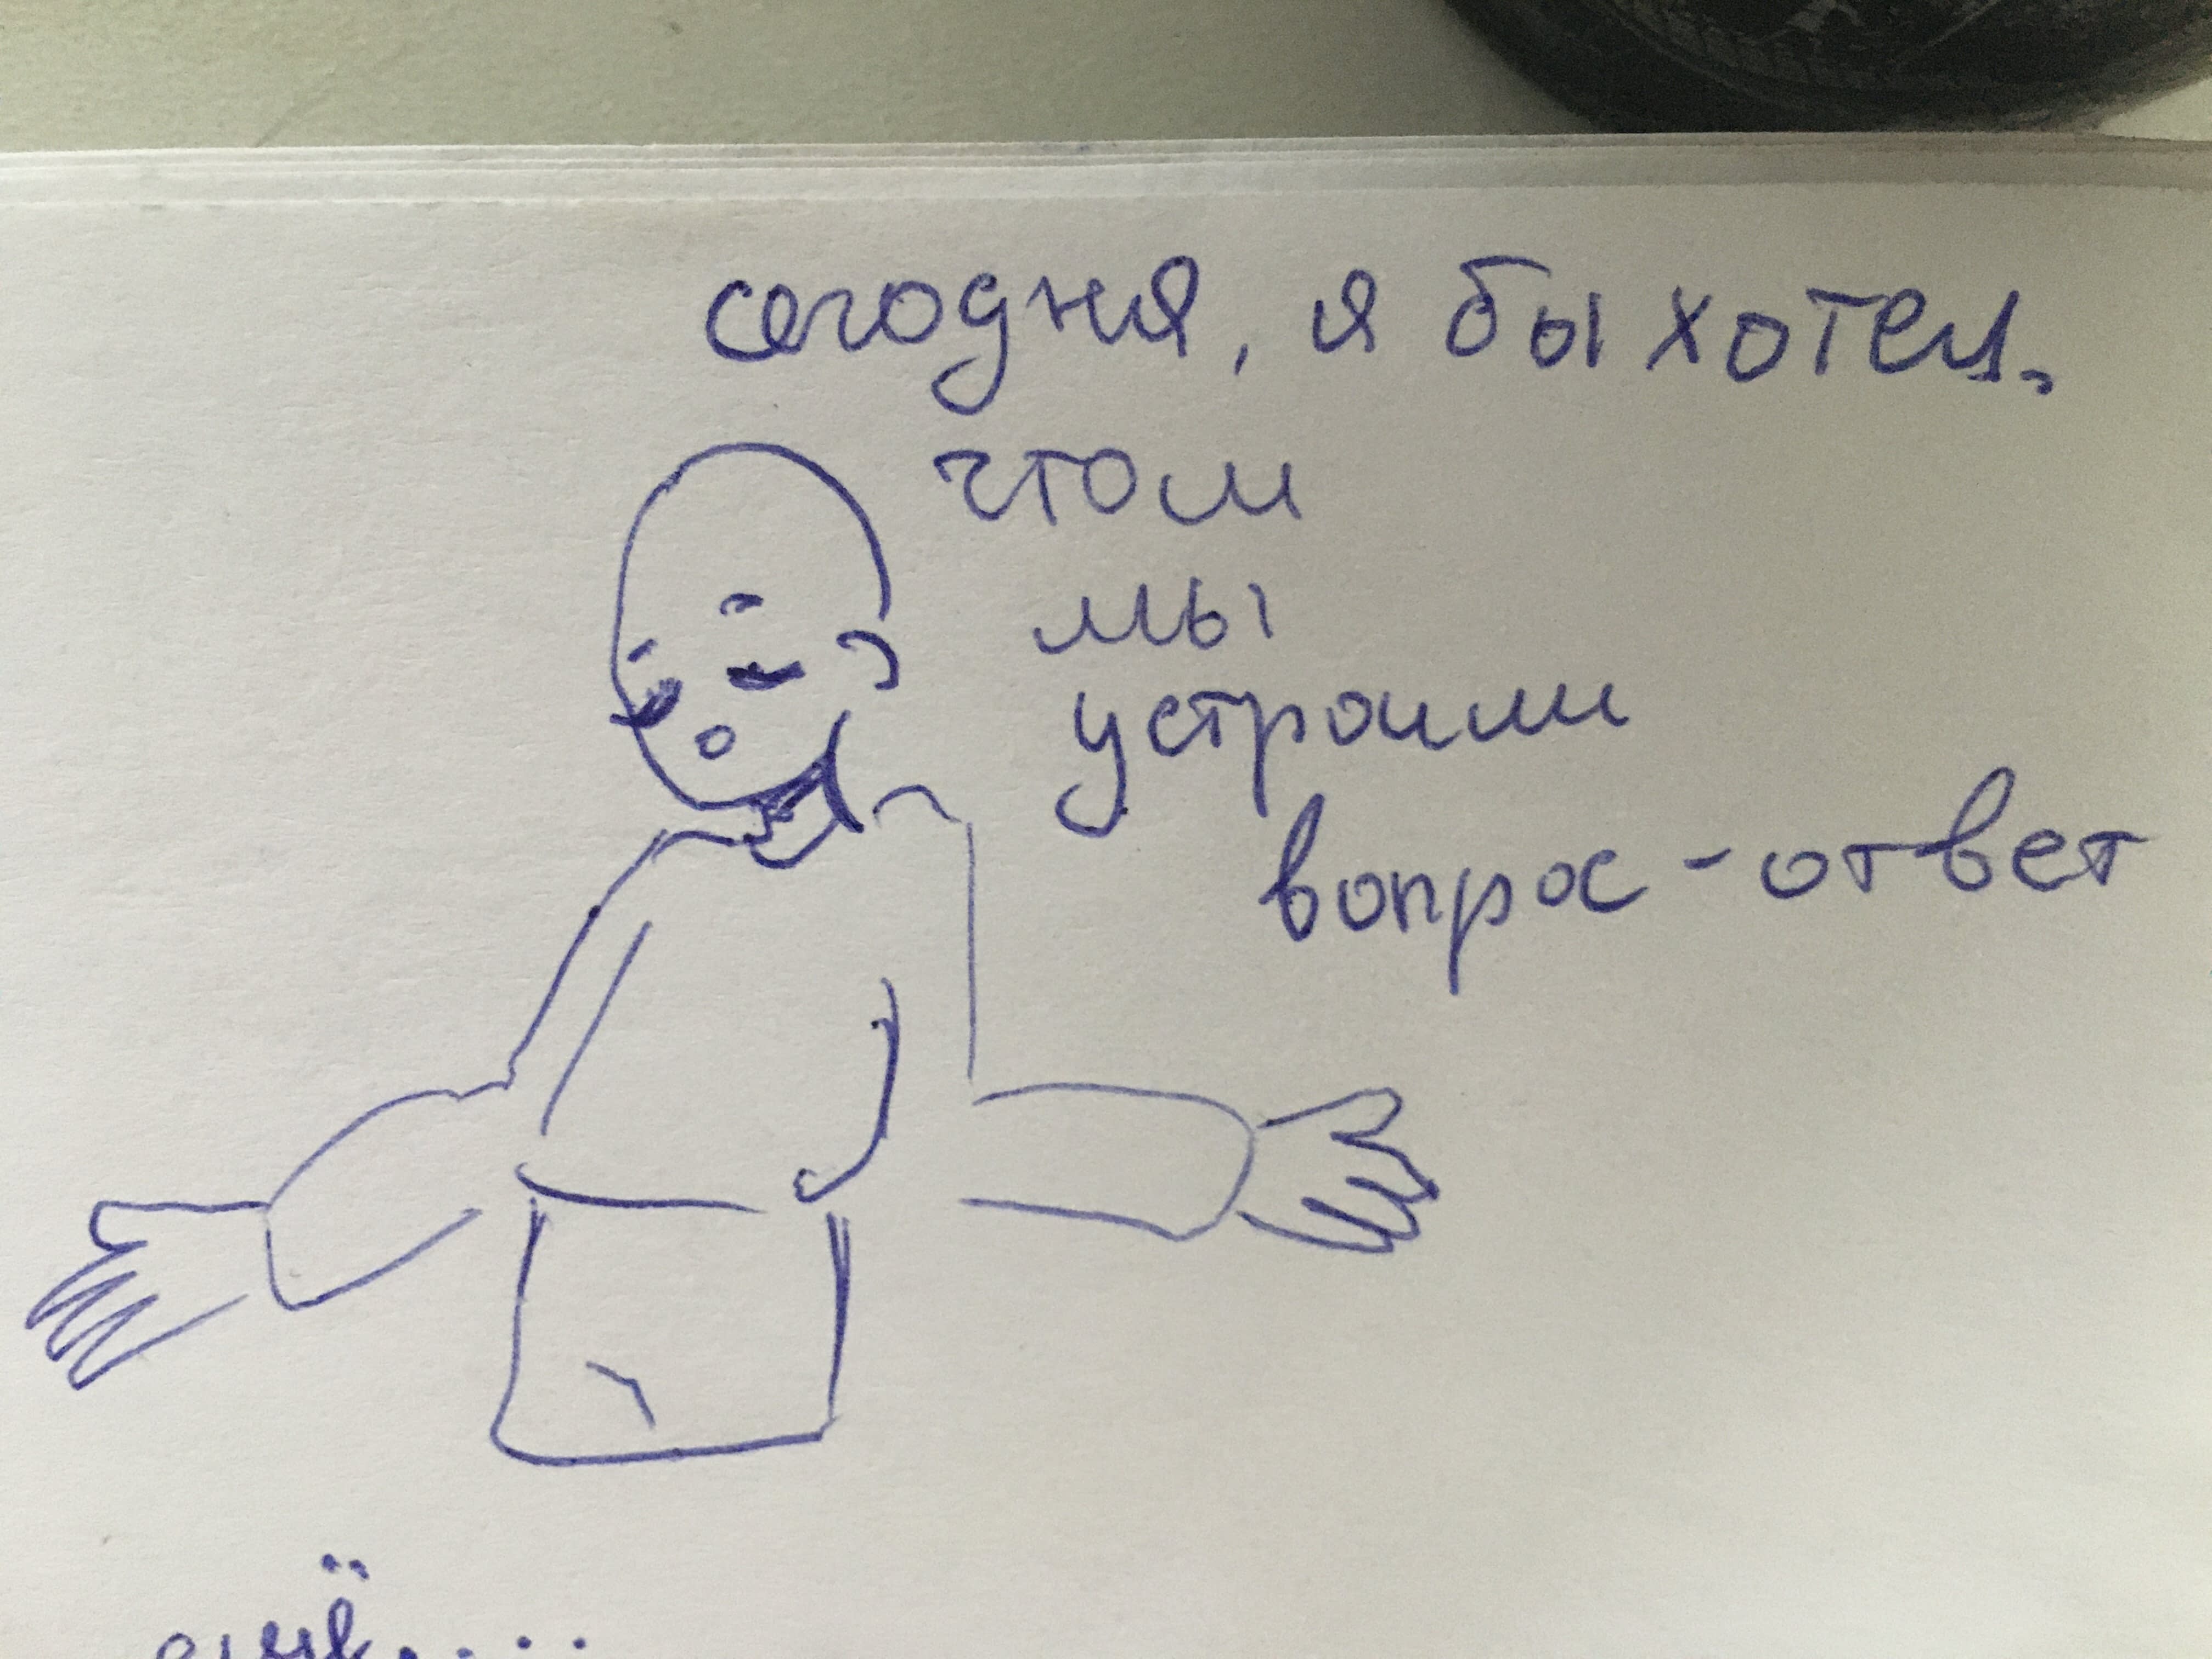 сегодня, я бы хотел,
чтом
мы
устроили
вопрос - ответ